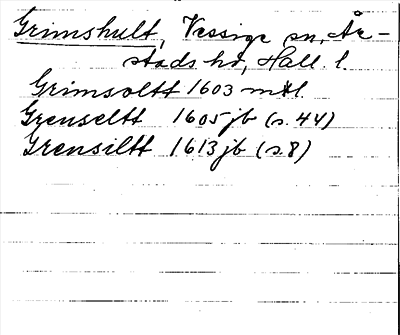 Grimshult, Vessige sn, År-
stads hd, Hall. l.
Grimsoltt 1603 mtl.
Grenseltt 1605 jb (s. 44)
Grensiltt 1613 jb (s. 8)